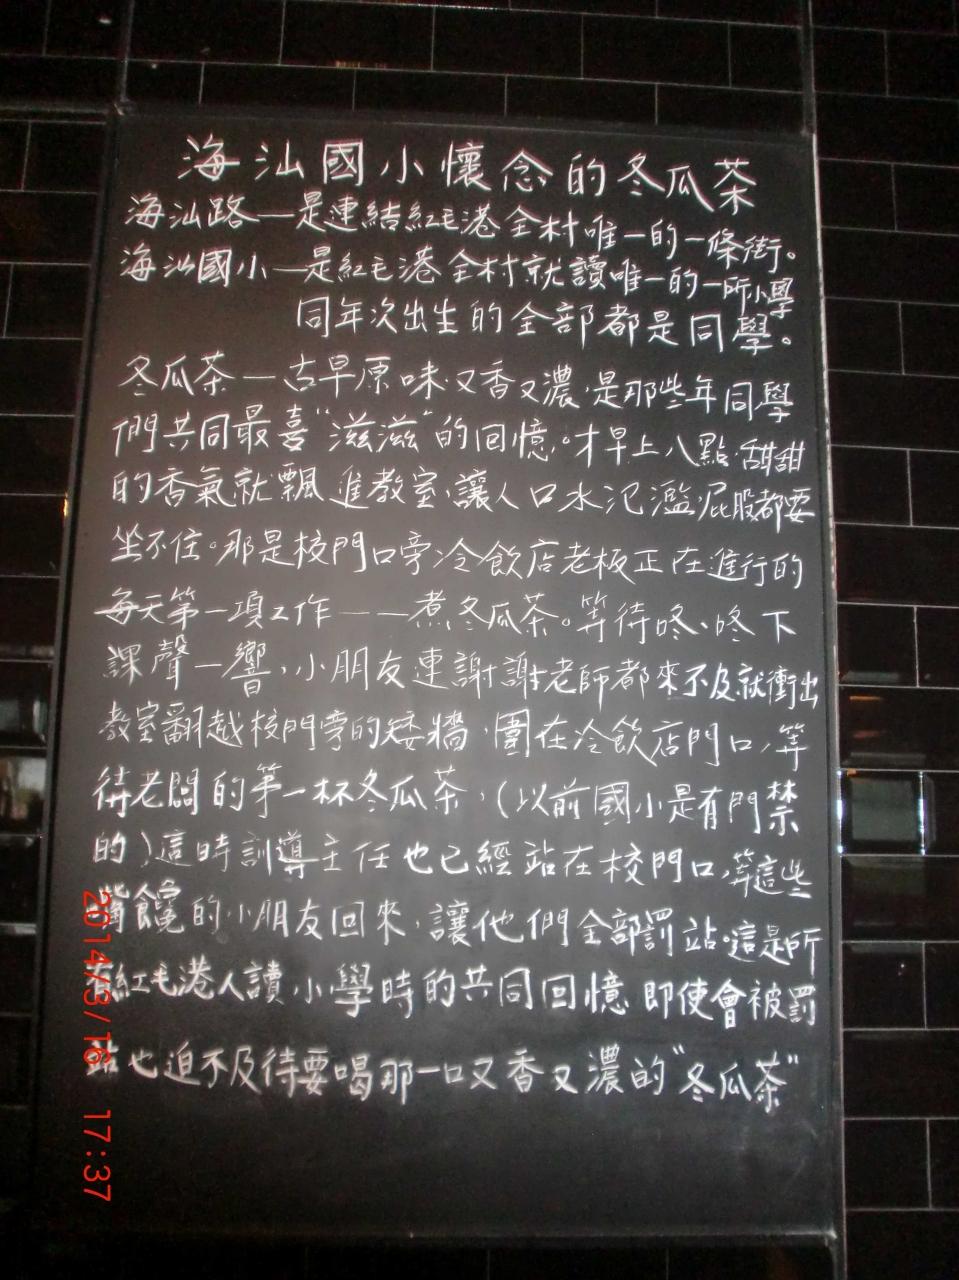 海汕國小懷念的冬瓜茶
海汕路—是連結紅毛港全村唯一的一條街。
海汕國小—是紅毛港全村就讀唯一的一所小學
同年次出生的全部都是同學。
冬瓜茶—古早原味,又香又濃,是那些年同學
們共同最喜"滋滋"的回憶。才早上八點,甜甜
的香氣就飄進教室,讓人口水氾濫屁股都要
坐不住。那是校門口旁冷飲店老板正在進行的
每天第一項工作——煮冬瓜茶。等待咚、咚下
課聲一響,小朋友連謝謝老師都來不及就衝出
教室翻越校門旁的矮牆,圍在冷飲店門口,等
待老闆的第一杯冬瓜茶,(以前國小是有門禁
的)這時訓導主任也已經站在校門口,等這些
嘴饞的小朋友回來,讓他們全部罰站。這是所
有紅毛港人讀小學時的共同回憶,即使會被罰
站也迫不及待要喝那一口又香又濃的"冬瓜茶"
2014/3/16 17:37